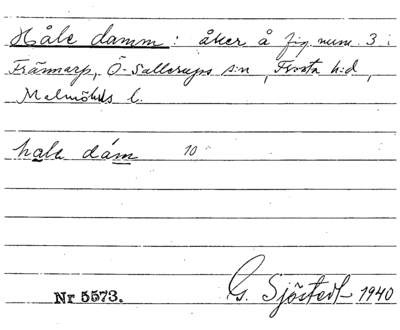 Håle damm: åker å fig. num. 3 i
Frännarp, Ö-Sallerups s:n, Frosta h:d,
Malmöhus l.
hale dám 10
Nr 5573. G. Sjöstedt 1940